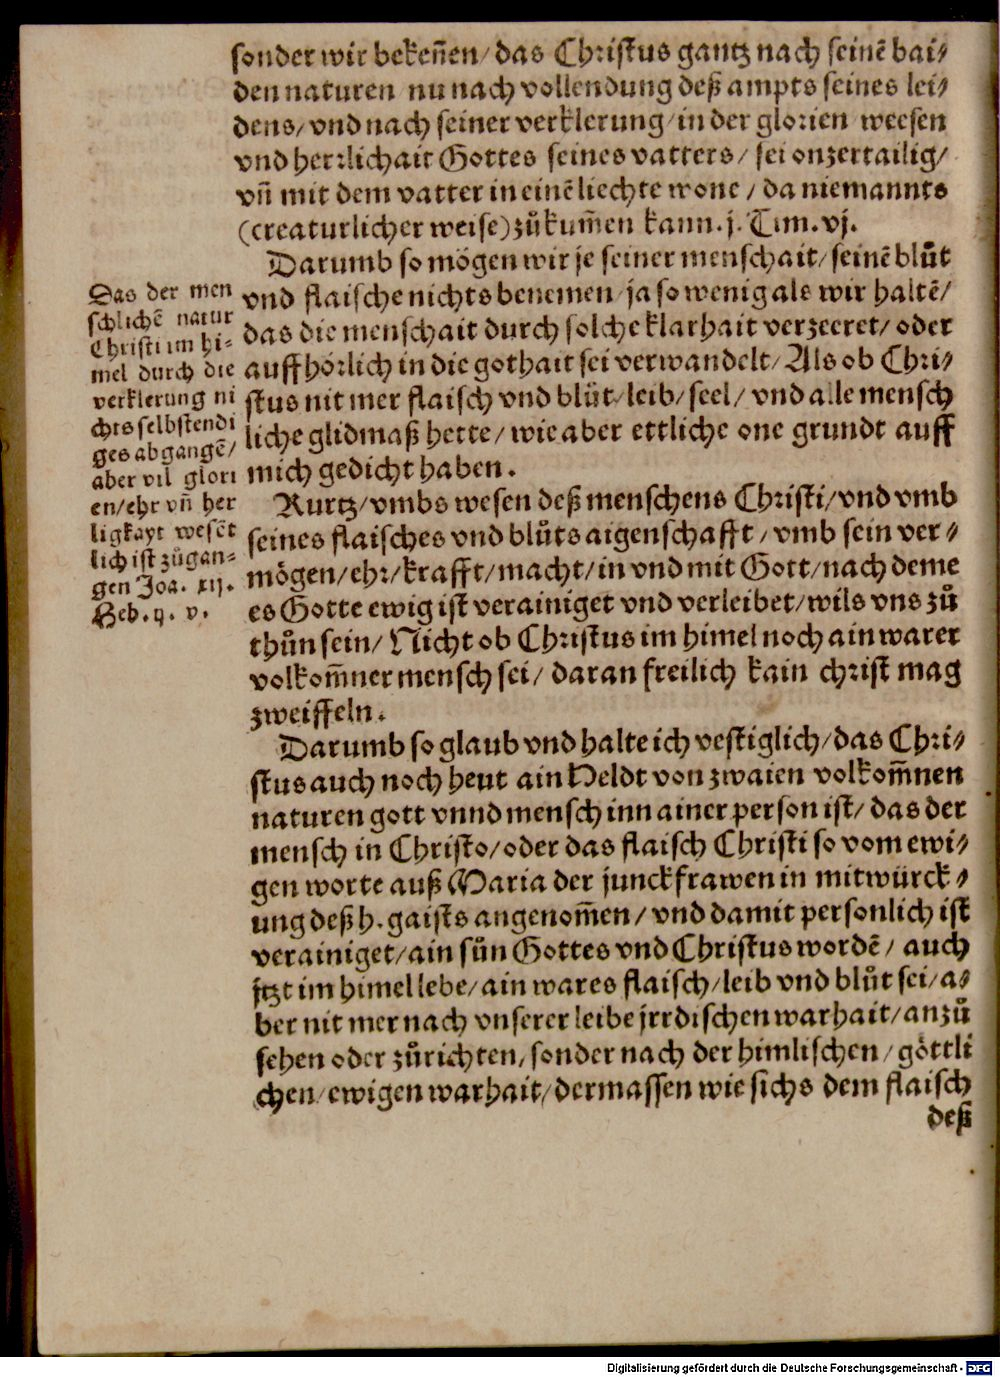 sonder wir bekeñen/ das Christus gantz nach seinẽ bai⸗
den naturen nu nach vollendung deß ampts seines lei⸗
dens/ vnd nach seiner verklerung/ in der glorien weesen
vnd herrlichait Gottes seines vatters/ sei onzertailig/
vñ mit dem vatter in einẽ liechte wone / da niemannts
(creaturlicher weise) zůkum̃en kann. j. Tim. vj.
Darumb so mögen wir je seiner menschait/ seinẽ blůt
vnd flaische nichts benemen/ ja so wenig als wir haltẽ/
das die menschait durch solche klarhait verzeeret/ oder
auffhörlich in die gothait sei verwandelt/ Als ob Chri⸗
stus nit mer flaisch vnd blůt/ leib/ seel/ vnd alle mensch
liche glidmaß hette/ wie aber ettliche one grundt auff
mich gedicht haben.
Das der men
schlichẽ natur
Christi im hi⸗
mel durch die
verklerung ni
chts selbstendi
ges abgangẽ/
aber vil glori
en/ ehr vñ her
ligkayt wesẽt
lich ist zůgan⸗
gen Joa. xij.
Heb. ij. v.
Kurtz/ vmbs wesen deß menschens Christi/ vnd vmb
seines flaisches vnd blůts aigenschafft / vmb sein ver⸗
mögen/ ehr/ krafft/ macht/ in vnd mit Gott/ nach deme
es Gotte ewig ist verainiget vnd verleibet/ wils vns zů
thůn sein/ Nicht ob Christus im himel noch ain warer
volkom̃ner mensch sei/ daran freilich kain christ mag
zweiffeln.
Darumb so glaub vnd halte ich vestiglich/ das Chri⸗
stus auch noch heut ain Heldt von zwaien volkom̃nen
naturen gott vnnd mensch inn ainer person ist/ das der
mensch in Christo/ oder das flaisch Christi so vom ewi⸗
gen worte auß Maria der junckfrawen in mitwürck⸗
ung deß h. gaists angenom̃en/ vnd damit personlich ist
verainiget/ ain sůn Gottes vnd Christus wordẽ/ auch
jtzt im himel lebe/ ain wares flaisch/ leib vnd blůt sei/ a⸗
ber nit mer nach vnserer leibe jrrdischen warhait/ anzů
sehen oder zůrichten/ sonder nach der himlischen/ göttli
chen/ ewigen warhait/ dermassen wie sichs dem flaisch
deß
Digitalisierung gefördert durch die Deutsche Forschungsgemeinschaft - DFG